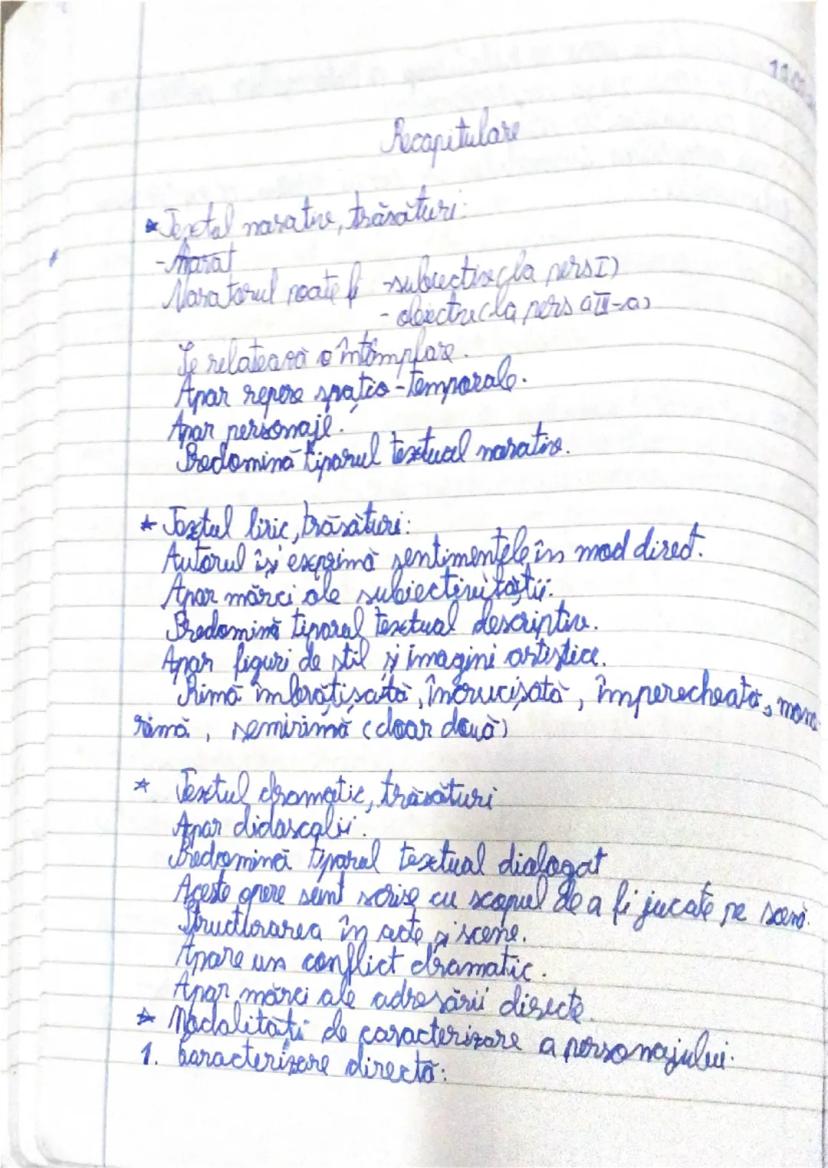 11.0
Recapitulare
* Textul narativ, trăsături:
- Narat
Naratorul poate fi - subiectiv (la pers I)
- obiectiv (la pers a III-a)
Se relatează o întâmplare.
Apar repere spațio-temporale.
Apar personaje.
Predomină tiparul textual narativ.
* Textul liric, trăsături:
Autorul își exprimă sentimentele în mod direct.
Apar mărci ale subiectivității.
Predomină tiparul textual descriptiv.
Apar figuri de stil și imagini artistice.
Rimă îmbrățișată, încrucișată, împerecheată, mono
rimă, semirimă (doar două)
* Textul dramatic, trăsături
Apar didascalii.
Predomină tiparul textual dialogat
Aceste opere sunt scrise cu scopul de a fi jucate pe scenă.
Structurarea în acte și scene.
Apare un conflict dramatic.
Apar mărci ale adresării directe.
* Modalități de caracterizare a personajului.
1. Caracterizare directă: